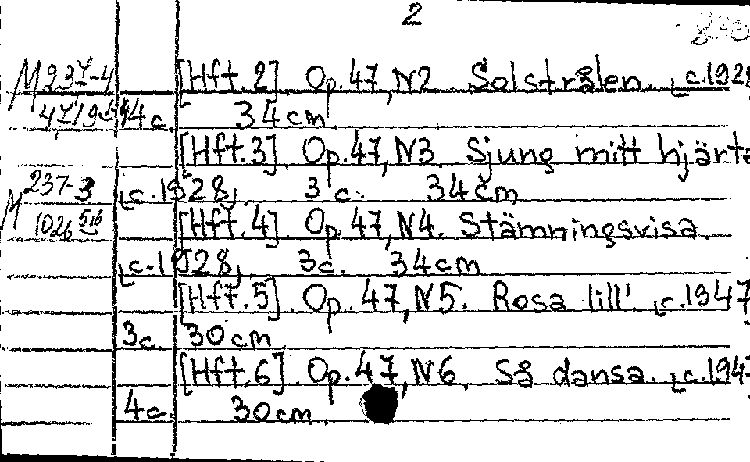 2
M237-4 [Hft.2] Op.47,N2 Solstrålen. [c.192
4c. 34cm
[Hft.3] Op.47,N3 Sjung mitt hjärta
M237-3 [c.1928] 3c. 34cm
1026 [Hft.4] Op.47,N4. Stämningsvisa.
[c.1928] 3c. 34cm
[Hft.5] Op.47,N5. Rosa lill' [c.1947
3c. 30cm
[Hft.6] Op.47,N6. Så dansa. [c.194
4c. 30cm